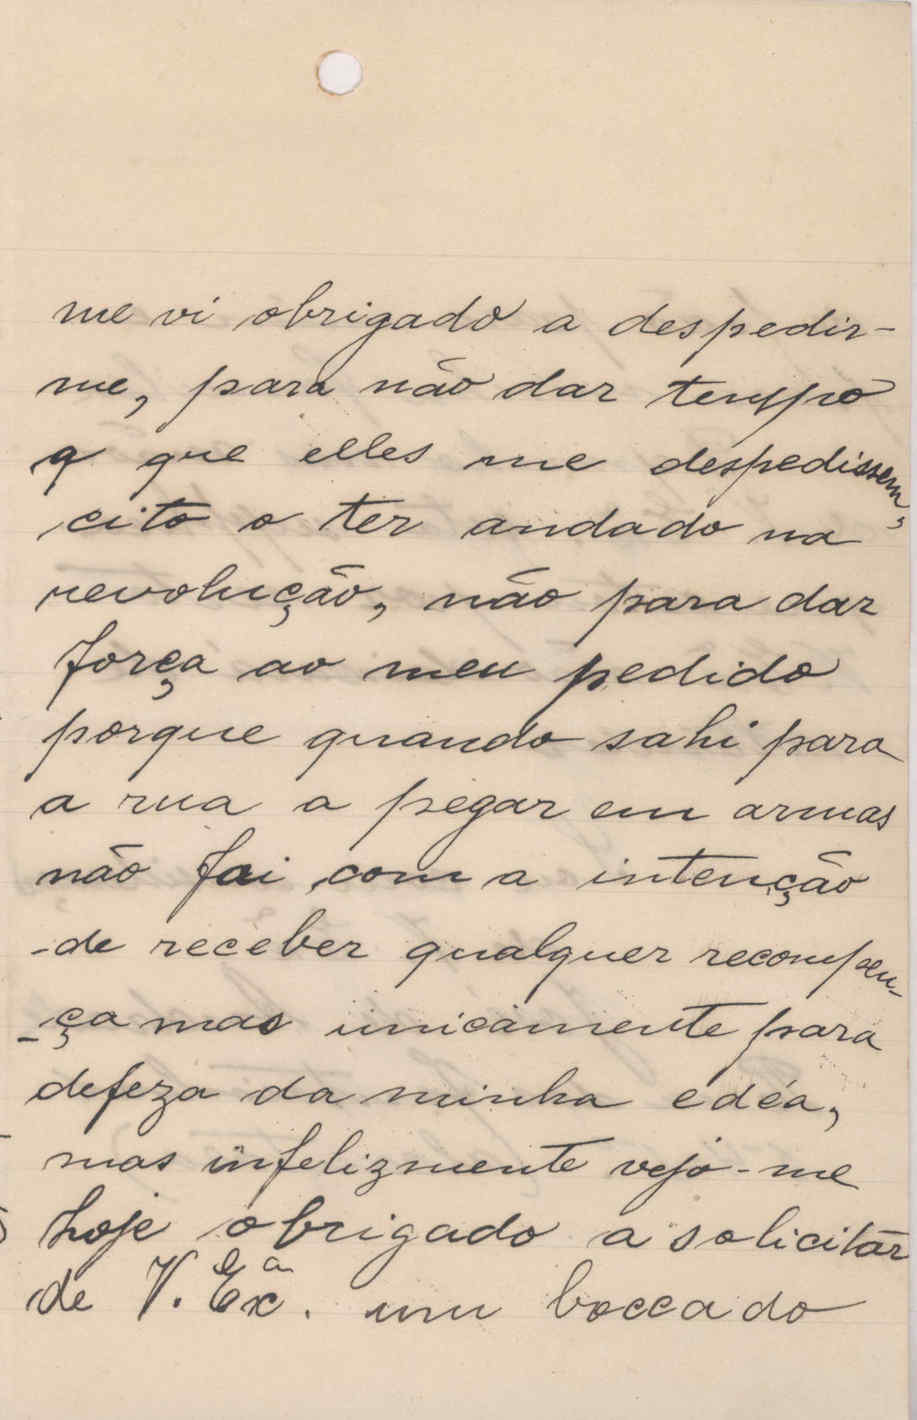 me vi obrigado a despedir-
me, para não dar tempo
q que elles me despedissem,
cito o ter andado na
revolução, não para dar
força ao meu pedido
porque quando sahi para
a rua a pegar em armas
não foi com a intenção
-de receber qualquer recompen-
-ça mas unicamente para
defeza da minha edéa,
mas infelizmente vejo-me
hoje obrigado a solicitar
de V. Exª. um boccado